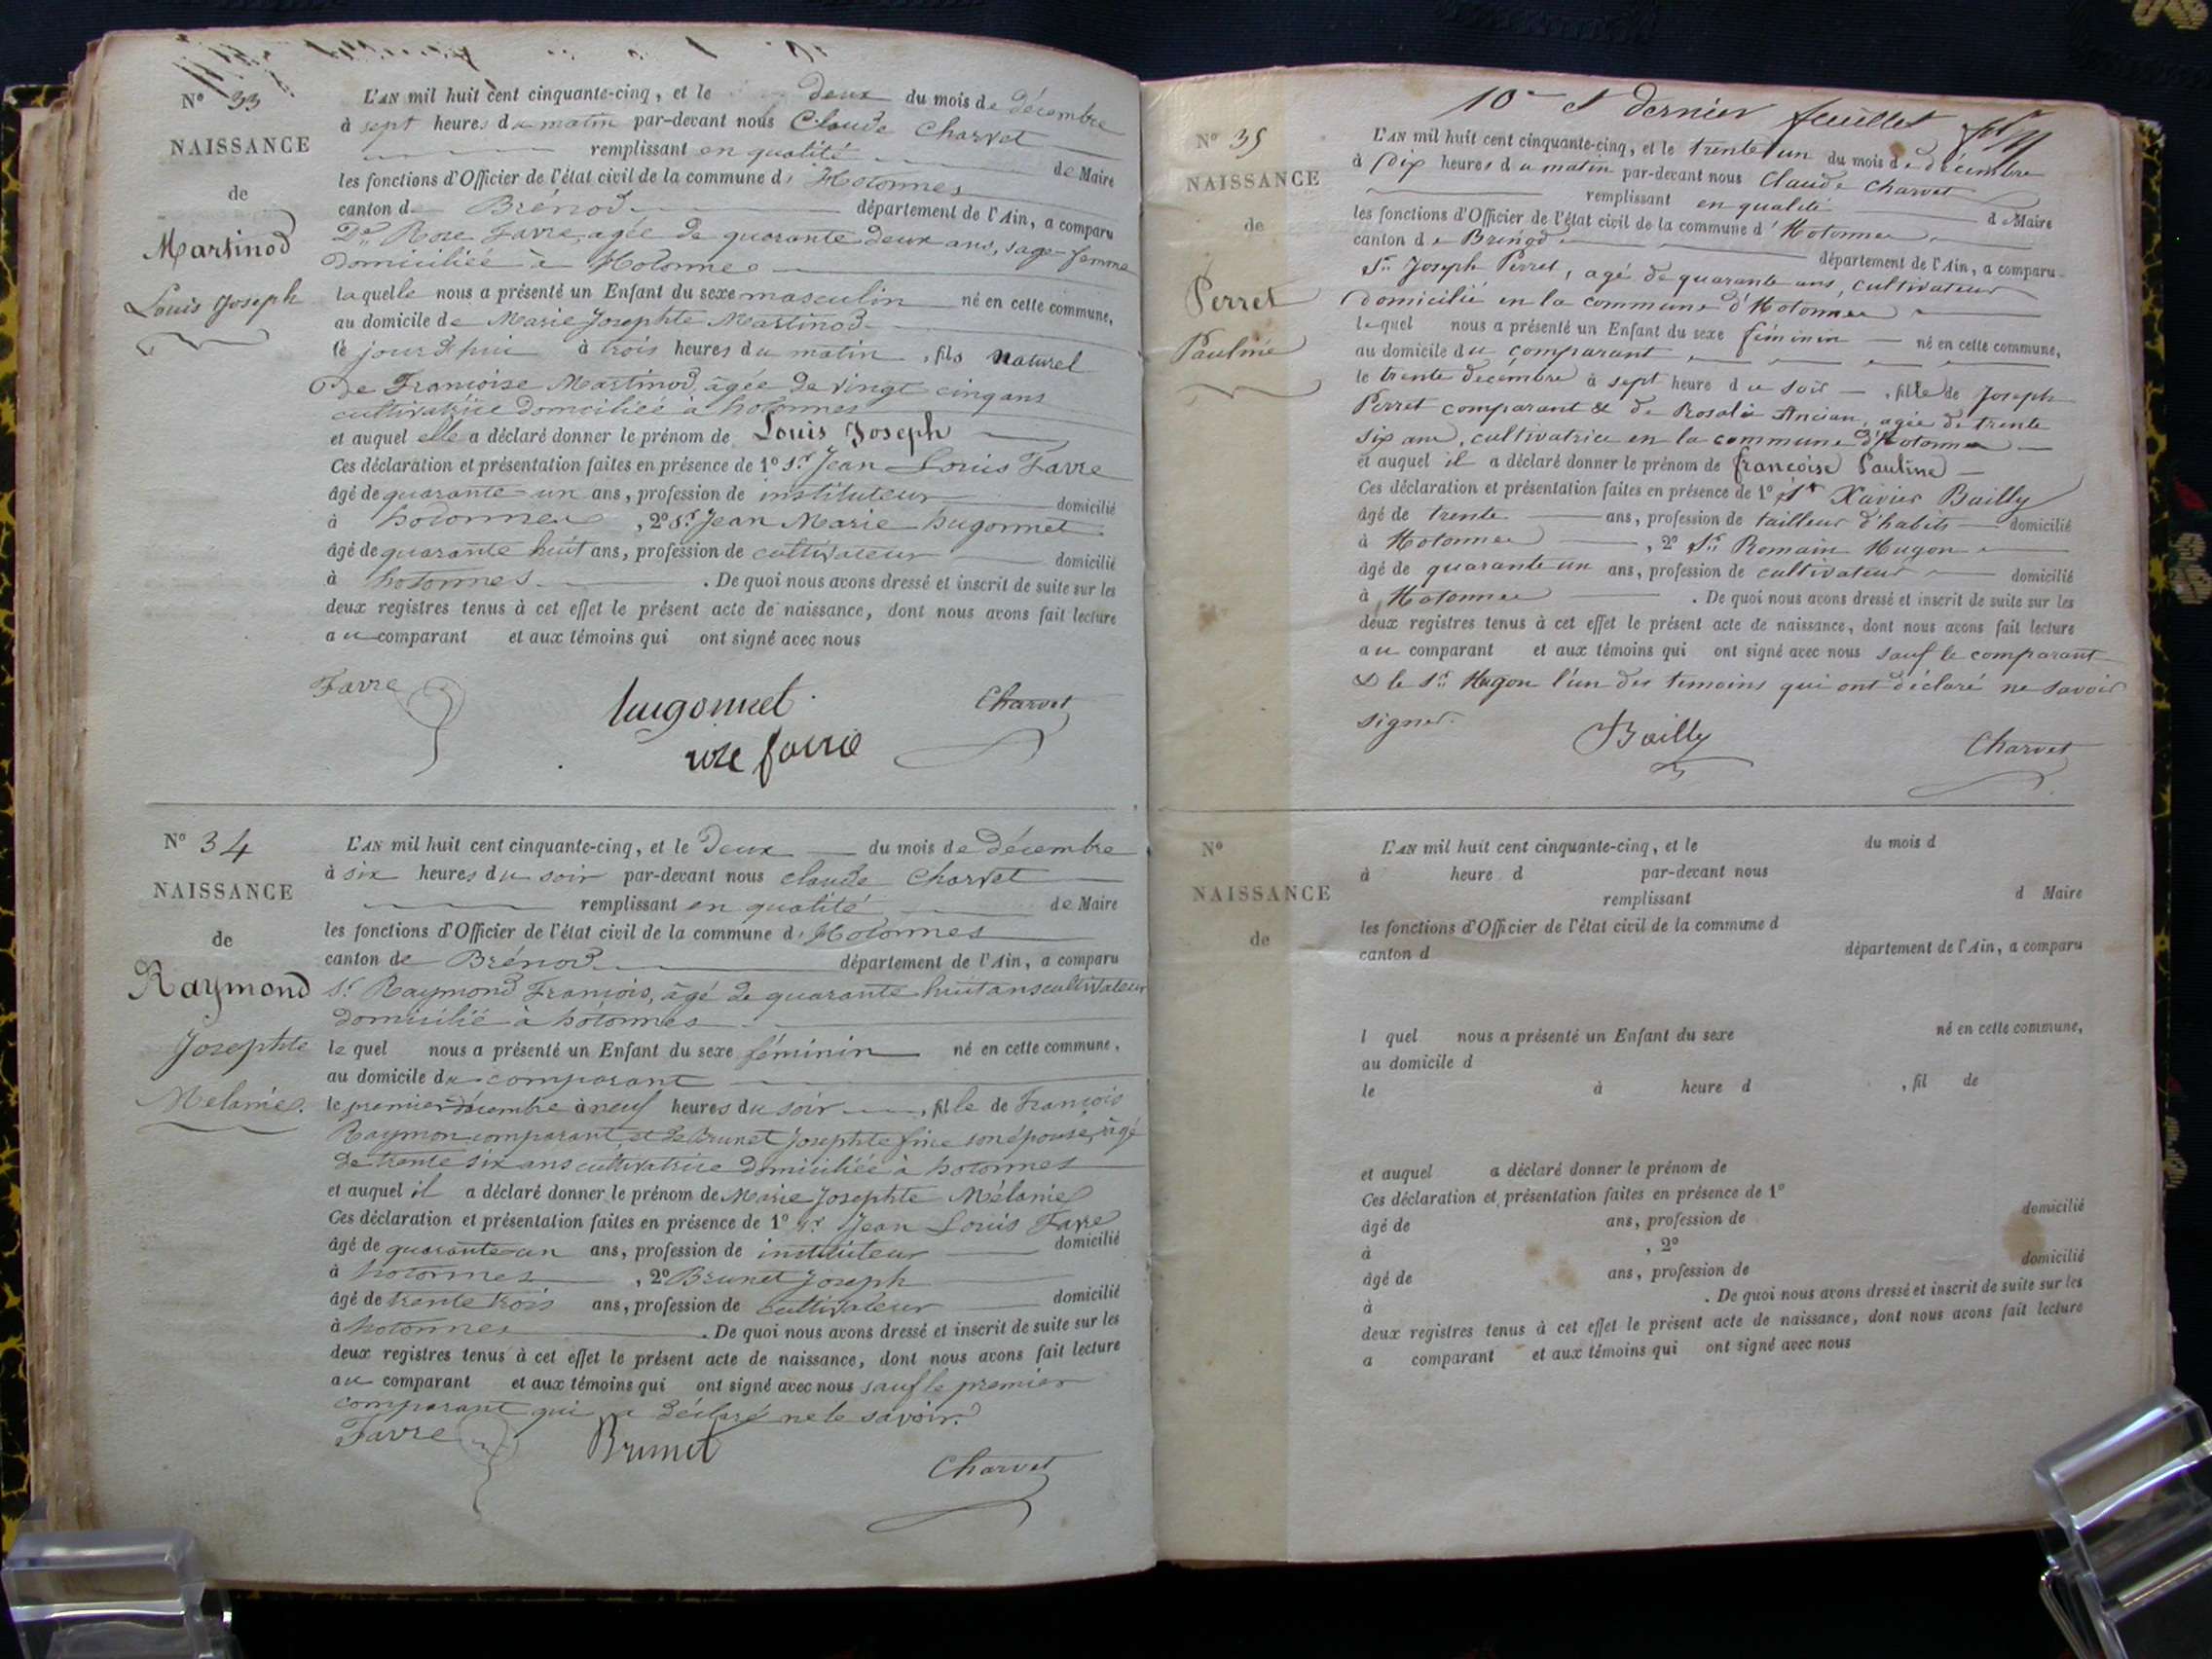 N° 33
NAISSANCE
de
Martinod
Louis Joseph
L'AN mil huit cent cinquante-cinq, et le deux du mois de décembre
à sept heures du matin par-devant nous Claude Charvet
remplissant en qualité de Maire
les fonctions d'Officier de l'état civil de la commune d' Hotonnes
canton de Brénod département de l'Ain, a comparu
De Rose Favre, agée de quarante deux ans, sage-femme
domiciliée à Hotonnes
laquelle nous a présenté un Enfant du sexe masculin né en cette commune,
au domicile de Marie Josephte Martinod
le jourd'hui à trois heures du matin, fils naturel
De Francoise Martinod, âgée de vingt cinq ans
cultivatrice domiciliée à hotonnes
et auquel elle a déclaré donner le prénom de Louis Joseph
Ces déclaration et présentation faites en présence de 1° Sr Jean Louis Favre
âgé de quarante un ans, profession de instituteur domicilié
à hotonnes, 2° Sr Jean Marie hugonnet
âgé de quarante huit ans, profession de cultivateur domicilié
à hotonnes. De quoi nous avons dressé et inscrit de suite sur les
deux registres tenus à cet effet le présent acte de naissance, dont nous avons fait lecture
au comparant et aux témoins qui ont signé avec nous
Favre hugonnet Charvet
rose favre
N° 34
NAISSANCE
de
Raymond
Josephte
Melanie.
L'AN mil huit cent cinquante-cinq, et le Deux du mois de décembre
à six heures du soir par-devant nous claude Charvet
remplissant en qualité de Maire
les fonctions d'Officier de l'état civil de la commune d' Hotonnes
canton de Brénod département de l'Ain, a comparu
Sr Raymond François, âgé de quarante huit ans cultivateur
domicilié à hotonnes
le quel nous a présenté un Enfant du sexe féminin né en cette commune,
au domicile du comparant
le premier décembre à neuf heures du soir, fille de François
Raymon comparant, et de Brunet Josephte fine son épouse, âgé
de trente six ans cultivatrice domiciliée à hotonnes
et auquel il a déclaré donner le prénom de Marie Josephte Mélanie
Ces déclaration et présentation faites en présence de 1° Sr Jean Louis Favre
âgé de quarante un ans, profession de instituteur domicilié
à hotonnes, 2° Brunet Joseph
âgé de trente trois ans, profession de cultivateur domicilié
à hotonnes. De quoi nous avons dressé et inscrit de suite sur les
deux registres tenus à cet effet le présent acte de naissance, dont nous avons fait lecture
au comparant et aux témoins qui ont signé avec nous sauf le premier
comparant qui a déclaré ne le savoir.
Favre Brunet
Charvet
10e et dernier feuillet
N° 35
NAISSANCE
de
Perret
Pauline
L'AN mil huit cent cinquante-cinq, et le trente un du mois de décembre
à dix heures du matin par-devant nous Claude Charvet
remplissant en qualité de Maire
les fonctions d'Officier de l'état civil de la commune d' Hotonnes
canton de Brénod département de l'Ain, a comparu
Sr Joseph Perret, agé de quarante ans, cultivateur
domicilié en la commune d'Hotonnes
lequel nous a présenté un Enfant du sexe féminin né en cette commune,
au domicile du comparant
le trente décembre à sept heure du soir, fille de Joseph
Perret comparant & de Rosalie Ancian, agée de trente
six ans, cultivatrice en la commune d'Hotonnes
et auquel il a déclaré donner le prénom de françoise Pauline
Ces déclaration et présentation faites en présence de 1° Sr Xavier Bailly
âgé de trente ans, profession de tailleur d'habits domicilié
à Hotonnes, 2° Sr Romain Hugon
âgé de quarante un ans, profession de cultivateur domicilié
à Hotonnes. De quoi nous avons dressé et inscrit de suite sur les
deux registres tenus à cet effet le présent acte de naissance, dont nous avons fait lecture
au comparant et aux témoins qui ont signé avec nous sauf le comparant
& le Sr Hugon l'un des temoins qui ont déclaré ne savoir
signer.
Bailly Charvet
N°
NAISSANCE
de
L'AN mil huit cent cinquante-cinq, et le du mois d
à heure d par-devant nous
remplissant d Maire
les fonctions d'Officier de l'état civil de la commune d
canton d département de l'Ain, a comparu
l quel nous a présenté un Enfant du sexe né en cette commune,
au domicile d
le à heure d, fil de
et auquel a déclaré donner le prénom de
Ces déclaration et présentation faites en présence de 1°
âgé de ans, profession de domicilié
à, 2°
âgé de ans, profession de domicilié
à. De quoi nous avons dressé et inscrit de suite sur les
deux registres tenus à cet effet le présent acte de naissance, dont nous avons fait lecture
a comparant et aux témoins qui ont signé avec nous